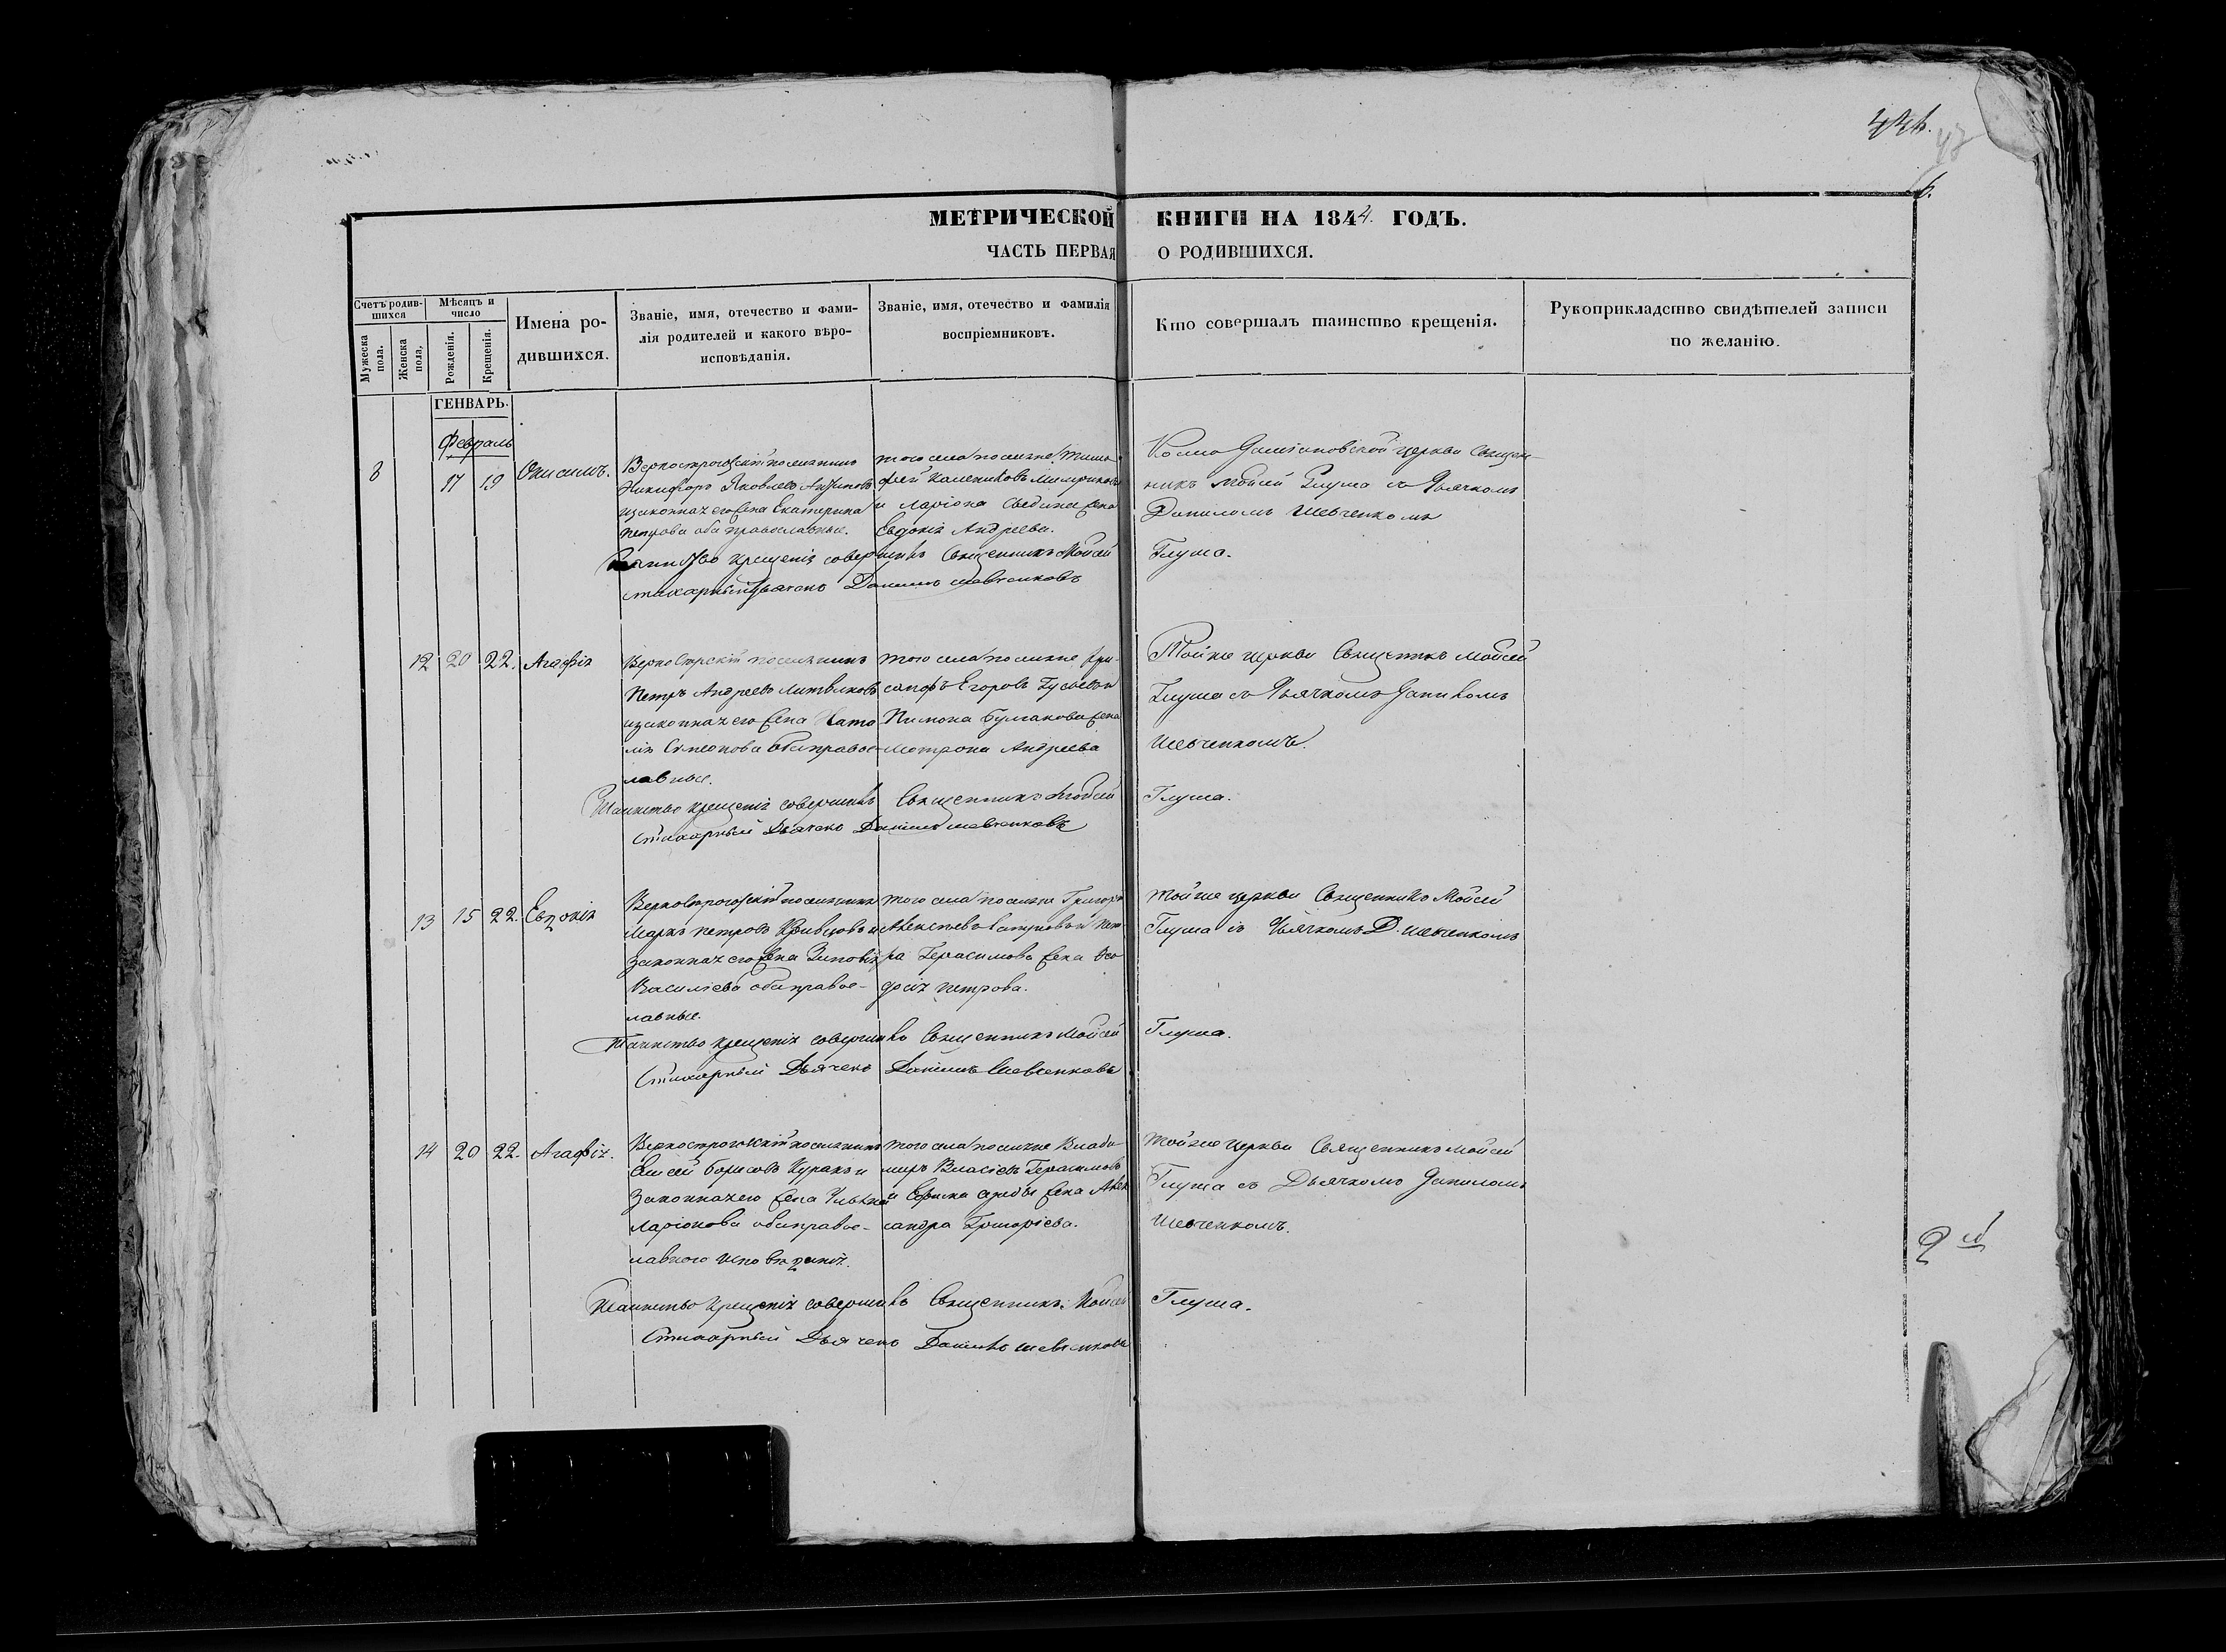 МЕТРИЧЕСКОЙ КНИГИ НА 1844. ГОДЪ.
ЧАСТЬ ПЕРВАЯ О РОДИВШИХСЯ.
Счетъ родив-
шихся
Мужеска
пола.
Женска
пола,
Мѣсяцъ и
число
Рожденія.
Крещенія.
Имена ро-
дившихся.
Званіе, имя, отечество и фами-
лія родителей и какого вѣро-
исповѣданія.
Званіе, имя, отечество и фамилія
воспріемниковъ.
Кто совершалъ таинство крещенія.
Рукоприкладство свидѣтелей записи
по желанію.
ГЕНВАРЬ.
Февраль
8
17 19
Онисимъ.
Никифоръ Яковлевъ
законная его жена Екатерина
Петрова оба православные.
того села поселяне Тимо-
фей
и Ларіона жена
Евдокія Андреева.
Космо Даміановской церкви Священ-
никъ Мойсей Глума съ Дьячкомъ
Даниломъ Шевченкомъ
Таинство крещенія совершивъ Священникъ Мойсей Глума.
Стихарный Дьячекъ Данилъ Шевченковъ
12 20 22. Агафія
поселянинъ
Петръ Андреевъ Литвиковъ
законная его жена Ната
лія Симеонова оба право-
лавные.
того села поселяне
Егоровъ Гусьевъ и
Пимона Булгакова жена
Мотрона Андреева
Тойже церкви Священникъ Мойсей
Глума съ Дьячкомъ Даниломъ
Шевченкомъ.
Таинство крещенія совершивъ Священникъ Мойсей Глума.
Стихарный Дьячекъ Данилъ Шевченковъ
13 15 22. Евдокія
поселянинъ
Марко Петровъ Кривцовъ и
законная его жена Зиновія
Василіева оба право-
лавные.
того села поселяне Григорій
Алексѣевъ и Пет-
ра Герасимова жена Фео
досія Петрова.
Тойже церкви Священникъ Мойсей
Глума съ Дьячкомъ Д. Шевченкомъ
Таинство крещенія совершивъ Священникъ Мойсей Глума.
Стихарный Дьячекъ Данилъ Шевченковъ
14 20 22. Агафія.
поселянинъ
Елисей Борисовъ Куракъ и
законная его жена Ульяна
Ларіонова оба право-
лавного исповѣданія.
того села поселяне Влади-
миръ Власіевъ Герасимовъ
и жена Алек
сандра Григоріева.
Тойже церкви Священникъ Мойсей
Глума съ Дьячкомъ Даниломъ
Шевченкомъ.
Таинство крещенія совершивъ Священникъ Мойсей Глума.
Стихарный Дьячекъ Данилъ Шевченковъ